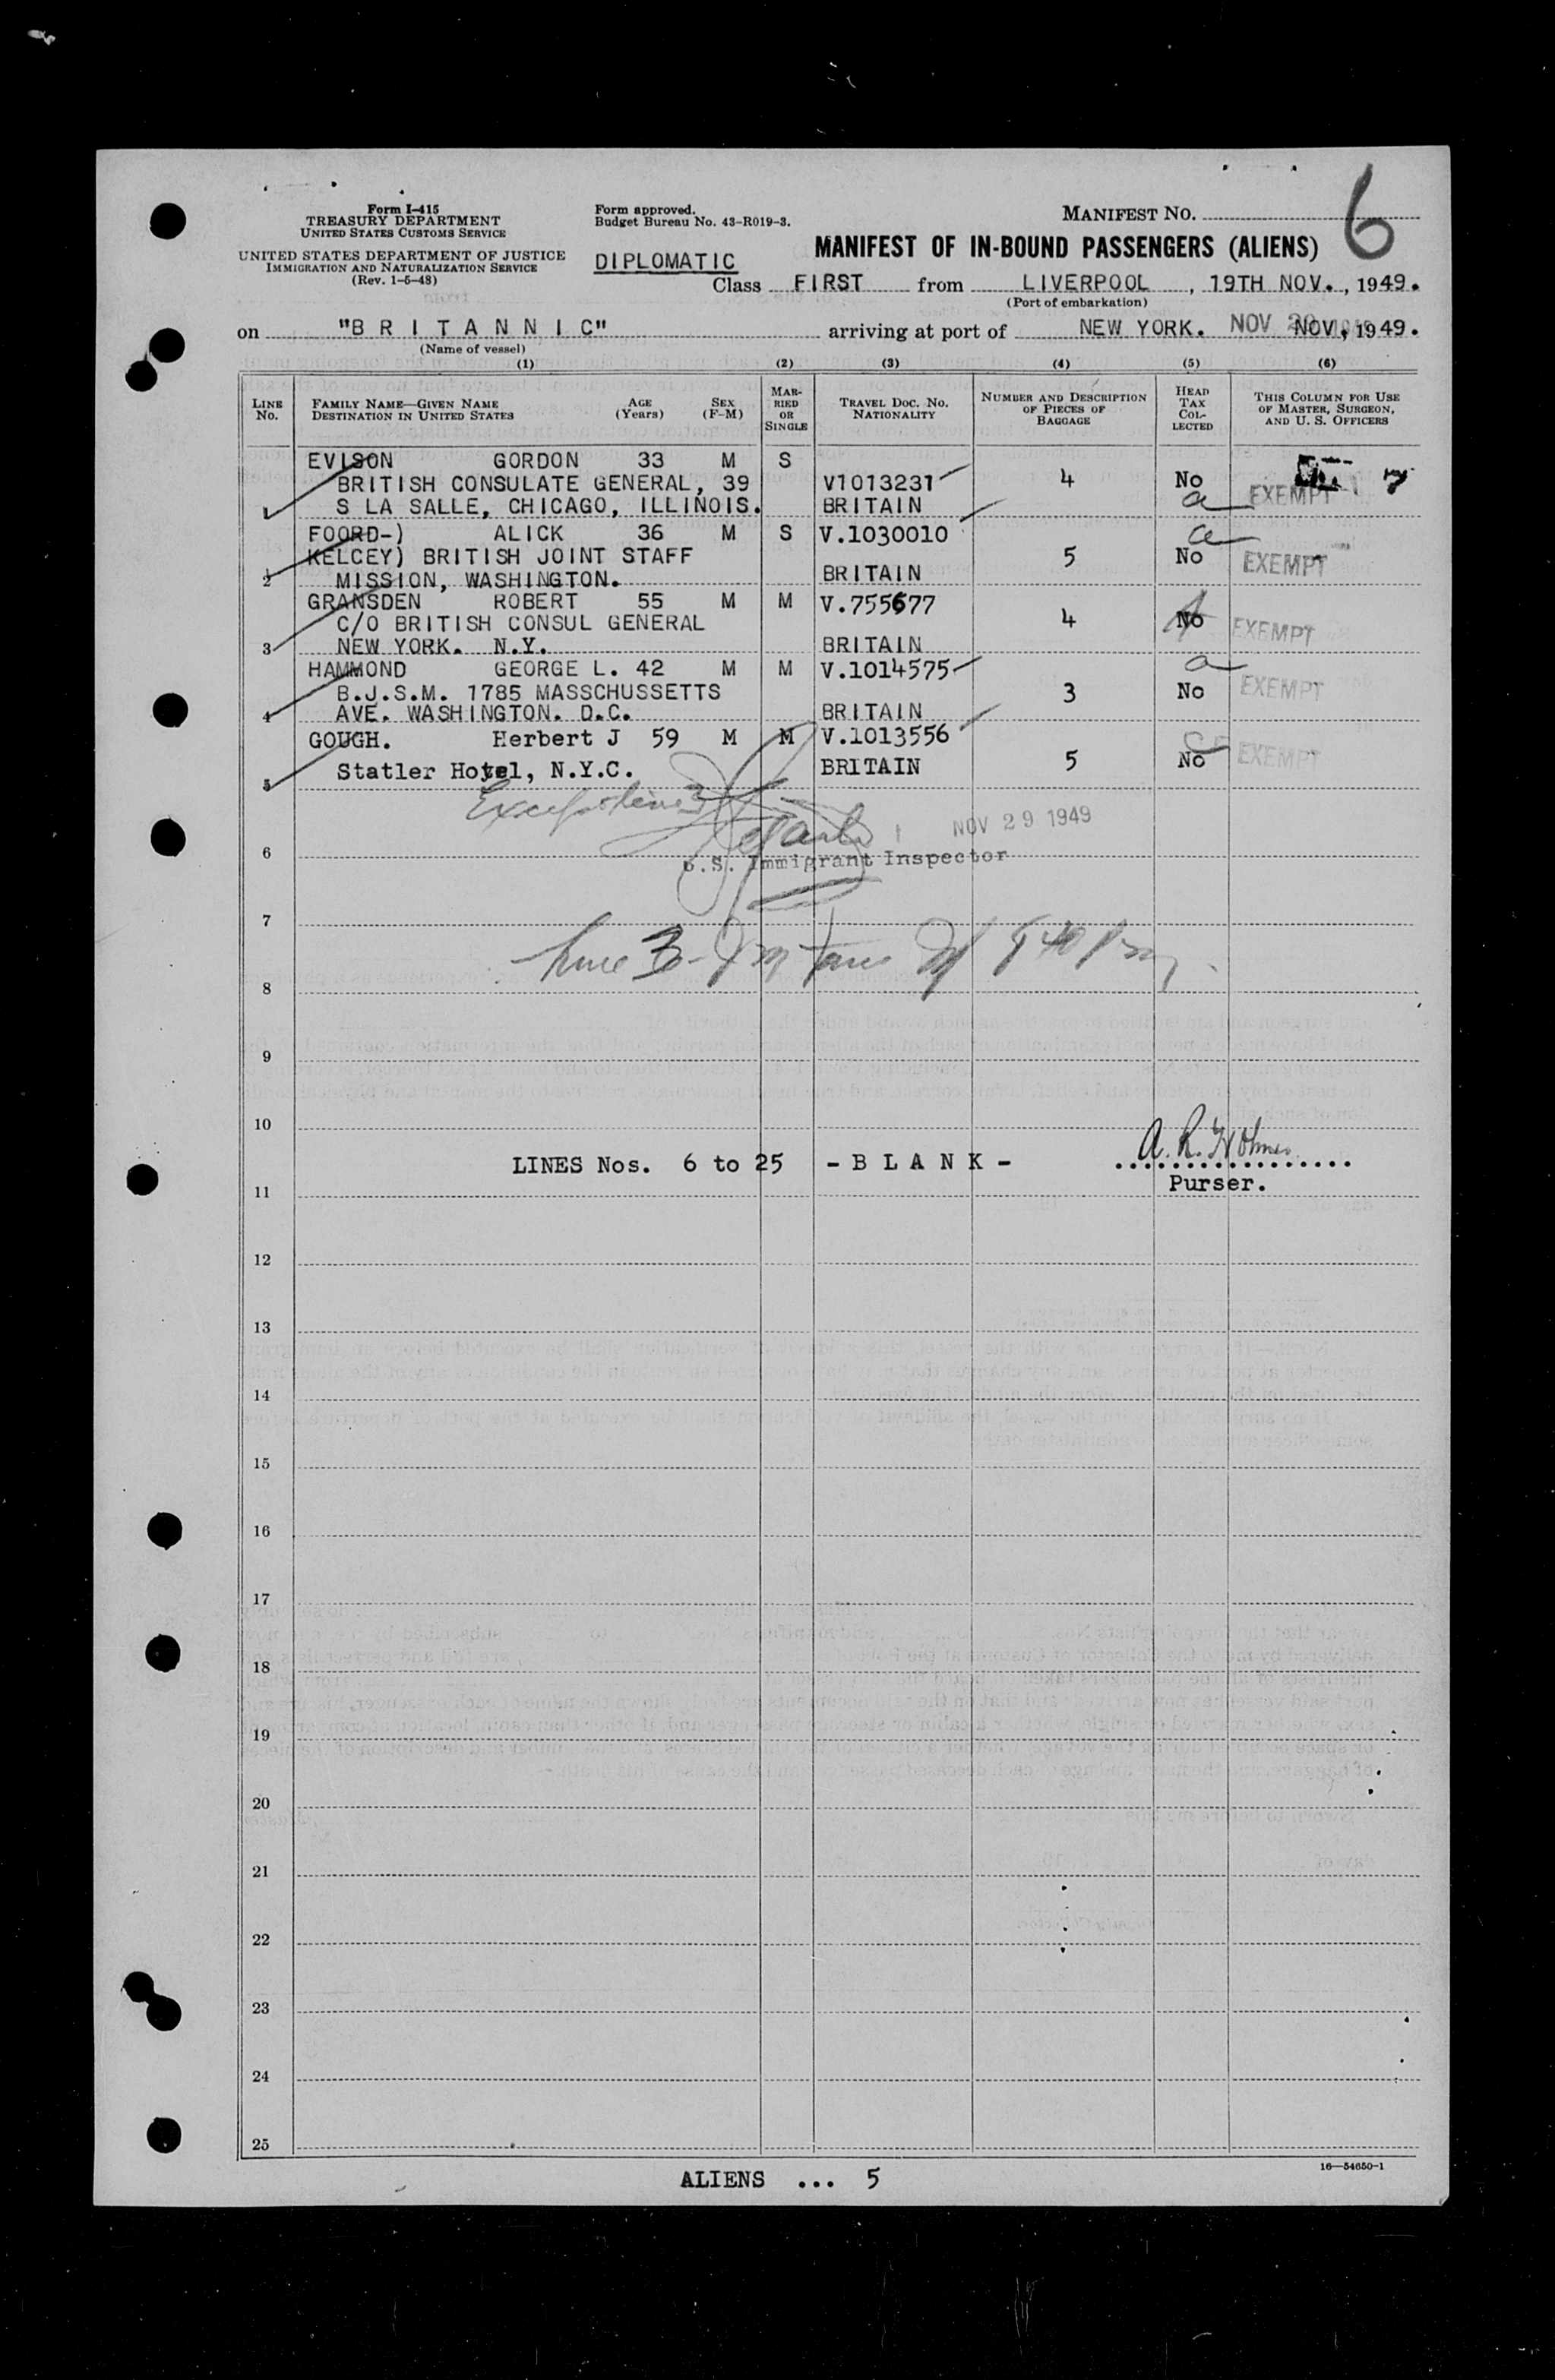 Form I-415
TREASURY DEPARTMENT
UNITED STATES CUSTOMS SERVICE
UNITED STATES DEPARTMENT OF JUSTICE
IMMIGRATION AND NATURALIZATION SERVICE
(Rev. 1-5-48)
Form approved.
Budget Bureau No. 43-R019-3.
MANIFEST NO. 6
MANIFEST OF IN-BOUND PASSENGERS (ALIENS)
DIPLOMATIC
Class FIRST from LIVERPOOL, 19TH NOV., 1949.
(Port of embarkation)
on "B R I T A N N I C" arriving at port of NEW YORK. NOV NOV, 1949.
(Name of vessel)
(1) (2) (3) (4) (5) (6)
LINE No. FAMILY NAME—GIVEN NAME DESTINATION IN UNITED STATES AGE (Years) SEX (F-M) MARRIED OR SINGLE TRAVEL DOC. NO. NATIONALITY NUMBER AND DESCRIPTION OF PIECES OF BAGGAGE HEAD TAX COLLECTED THIS COLUMN FOR USE OF MASTER, SURGEON, AND U. S. OFFICERS
EVISON GORDON 33 M S
BRITISH CONSULATE GENERAL, 39 V1013231 4 No
1 S LA SALLE, CHICAGO, ILLINOIS. BRITAIN a EXEMPT
FOORD-) ALICK 36 M S V.1030010
KELCEY) BRITISH JOINT STAFF 5 No EXEMPT
2 MISSION, WASHINGTON. BRITAIN
GRANSDEN ROBERT 55 M M V.755677
C/O BRITISH CONSUL GENERAL 4 No EXEMPT
3 NEW YORK. N.Y. BRITAIN
HAMMOND GEORGE L. 42 M M V.1014575 a
B.J.S.M. 1785 MASSCHUSSETTS 3 No EXEMPT
4 AVE. WASHINGTON. D.C. BRITAIN
GOUGH. Herbert J 59 M M V.1013556
Statler Hotel, N.Y.C. BRITAIN 5 No EXEMPT
5
Except line 3
NOV 29 1949
6 U.S. Immigrant Inspector
7
Line 3
8
9
10
LINES Nos. 6 to 25 - B L A N K - A. R. Holmes
11 Purser.
12
13
14
15
16
17
18
19
20
21
22
23
24
25
16—54650-1
ALIENS ... 5